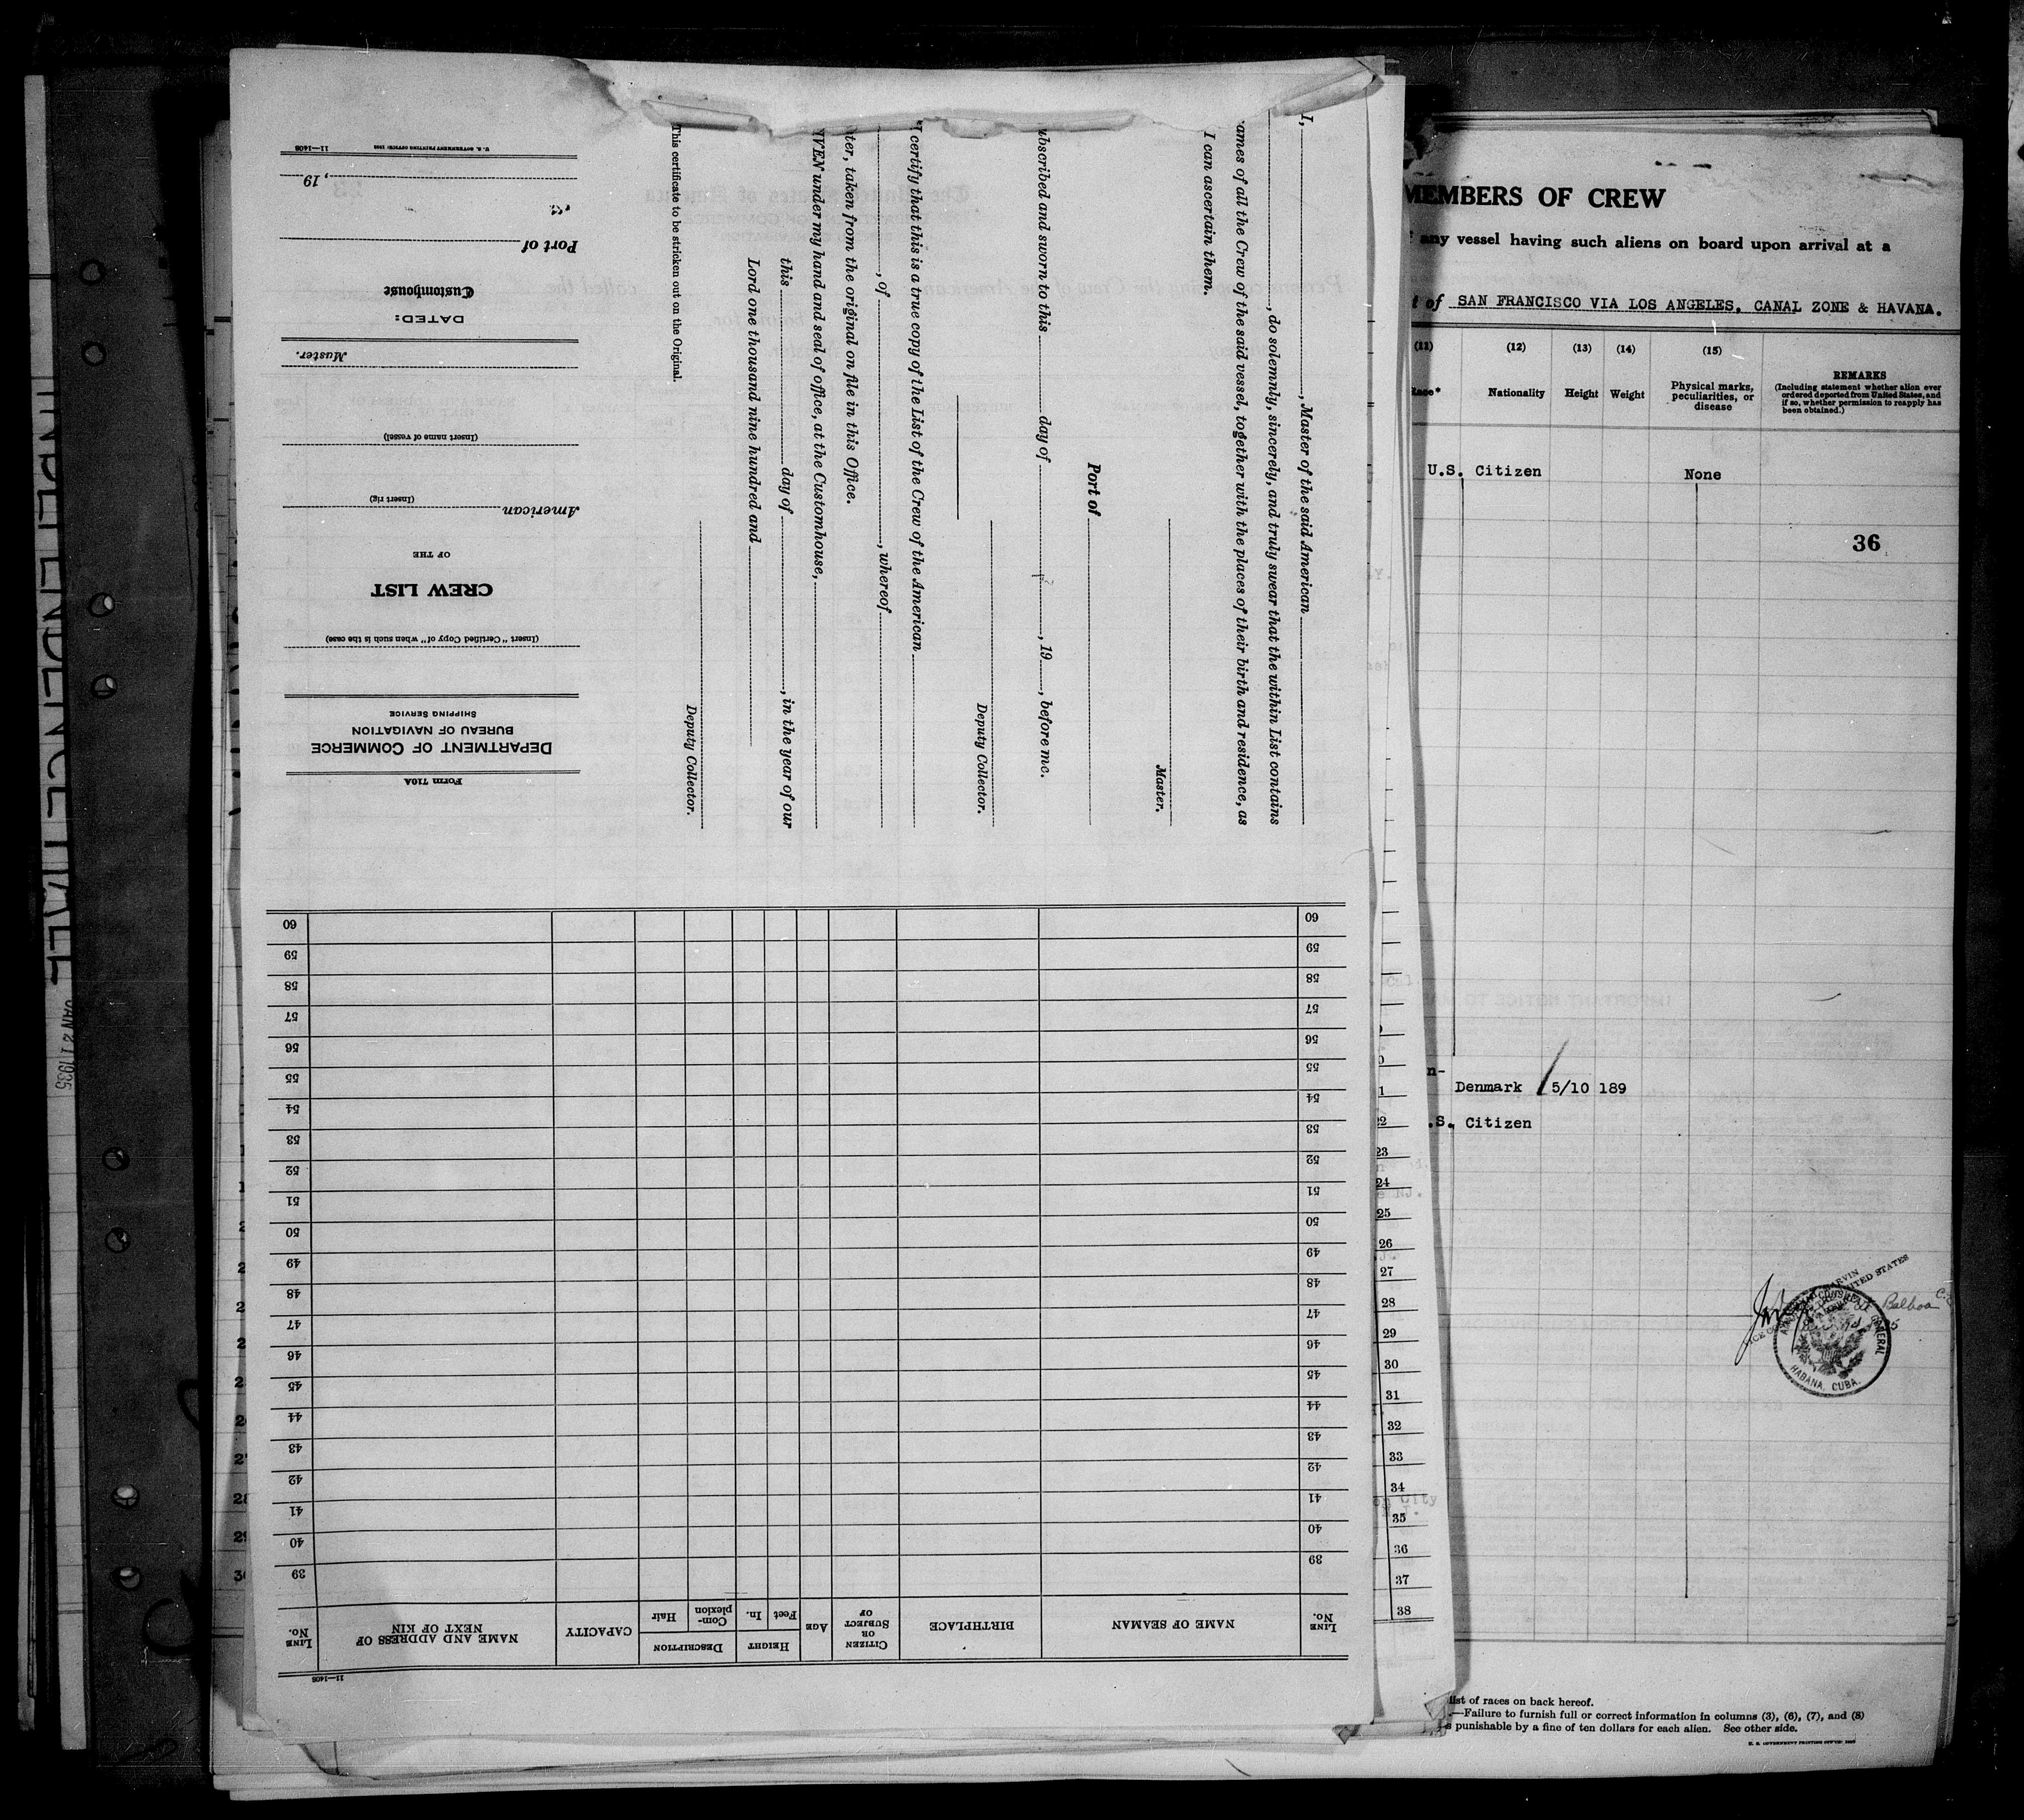 INDEPENDENCE HALL
JAN 21 1935
Form 710A
DEPARTMENT OF COMMERCE
BUREAU OF NAVIGATION
SHIPPING SERVICE
(Insert "Certified Copy of" when such is the case)
CREW LIST
OF THE
American
(Insert rig)
(Insert name of vessel)
Master.
DATED:
Customhouse
Port of
, 19
11—1408 U. S. GOVERNMENT PRINTING OFFICE:
I, , Master of the said American
, do solemnly, sincerely, and truly swear that the within List contains
ames of all the Crew of the said vessel, together with the places of their birth and residence, as
I can ascertain them.
Master.
Port of
ubscribed and sworn to this day of , 19 , before me.
Deputy Collector.
I certify that this is a true copy of the List of the Crew of the American
, of , whereof
ter, taken from the original on file in this Office.
IVEN under my hand and seal of office, at the Customhouse,
this day of , in the year of our
Lord one thousand nine hundred and
Deputy Collector.
This certificate to be stricken out on the Original.
11—1408
LINE No.
NAME OF SEAMAN
BIRTHPLACE
CITIZEN OR SUBJECT OF
AGE
HEIGHT
Feet
In.
DESCRIPTION
Com-plexion
Hair
CAPACITY
NAME AND ADDRESS OF NEXT OF KIN
LINE No.
39 39
40 40
41 41
42 42
43 43
44 44
45 45
46 46
47 47
48 48
49 49
50 50
51 51
52 52
53 53
54 54
55 55
56 56
57 57
58 58
59 59
60 60
23
24
25
26
27
28
29
30
31
32
33
34
35
36
37
38
MEMBERS OF CREW
any vessel having such aliens on board upon arrival at a
of SAN FRANCISCO VIA LOS ANGELES, CANAL ZONE & HAVANA.
(11) (12) (13) (14) (15)
Race* Nationality Height Weight Physical marks, peculiarities, or disease
REMARKS
(Including statement whether alien ever
ordered deported from United States, and
if so, whether permission to reapply has
been obtained.)
U.S. Citizen None
36
n-
Denmark 5/10 189
.S. Citizen
MARVIN
UNITED STATES
AMERICAN CONSULATE GENERAL
HABANA, CUBA.
Balboa C.Z.
list of races on back hereof.
—Failure to furnish full or correct information in columns (3), (6), (7), and (8)
s punishable by a fine of ten dollars for each alien. See other side.